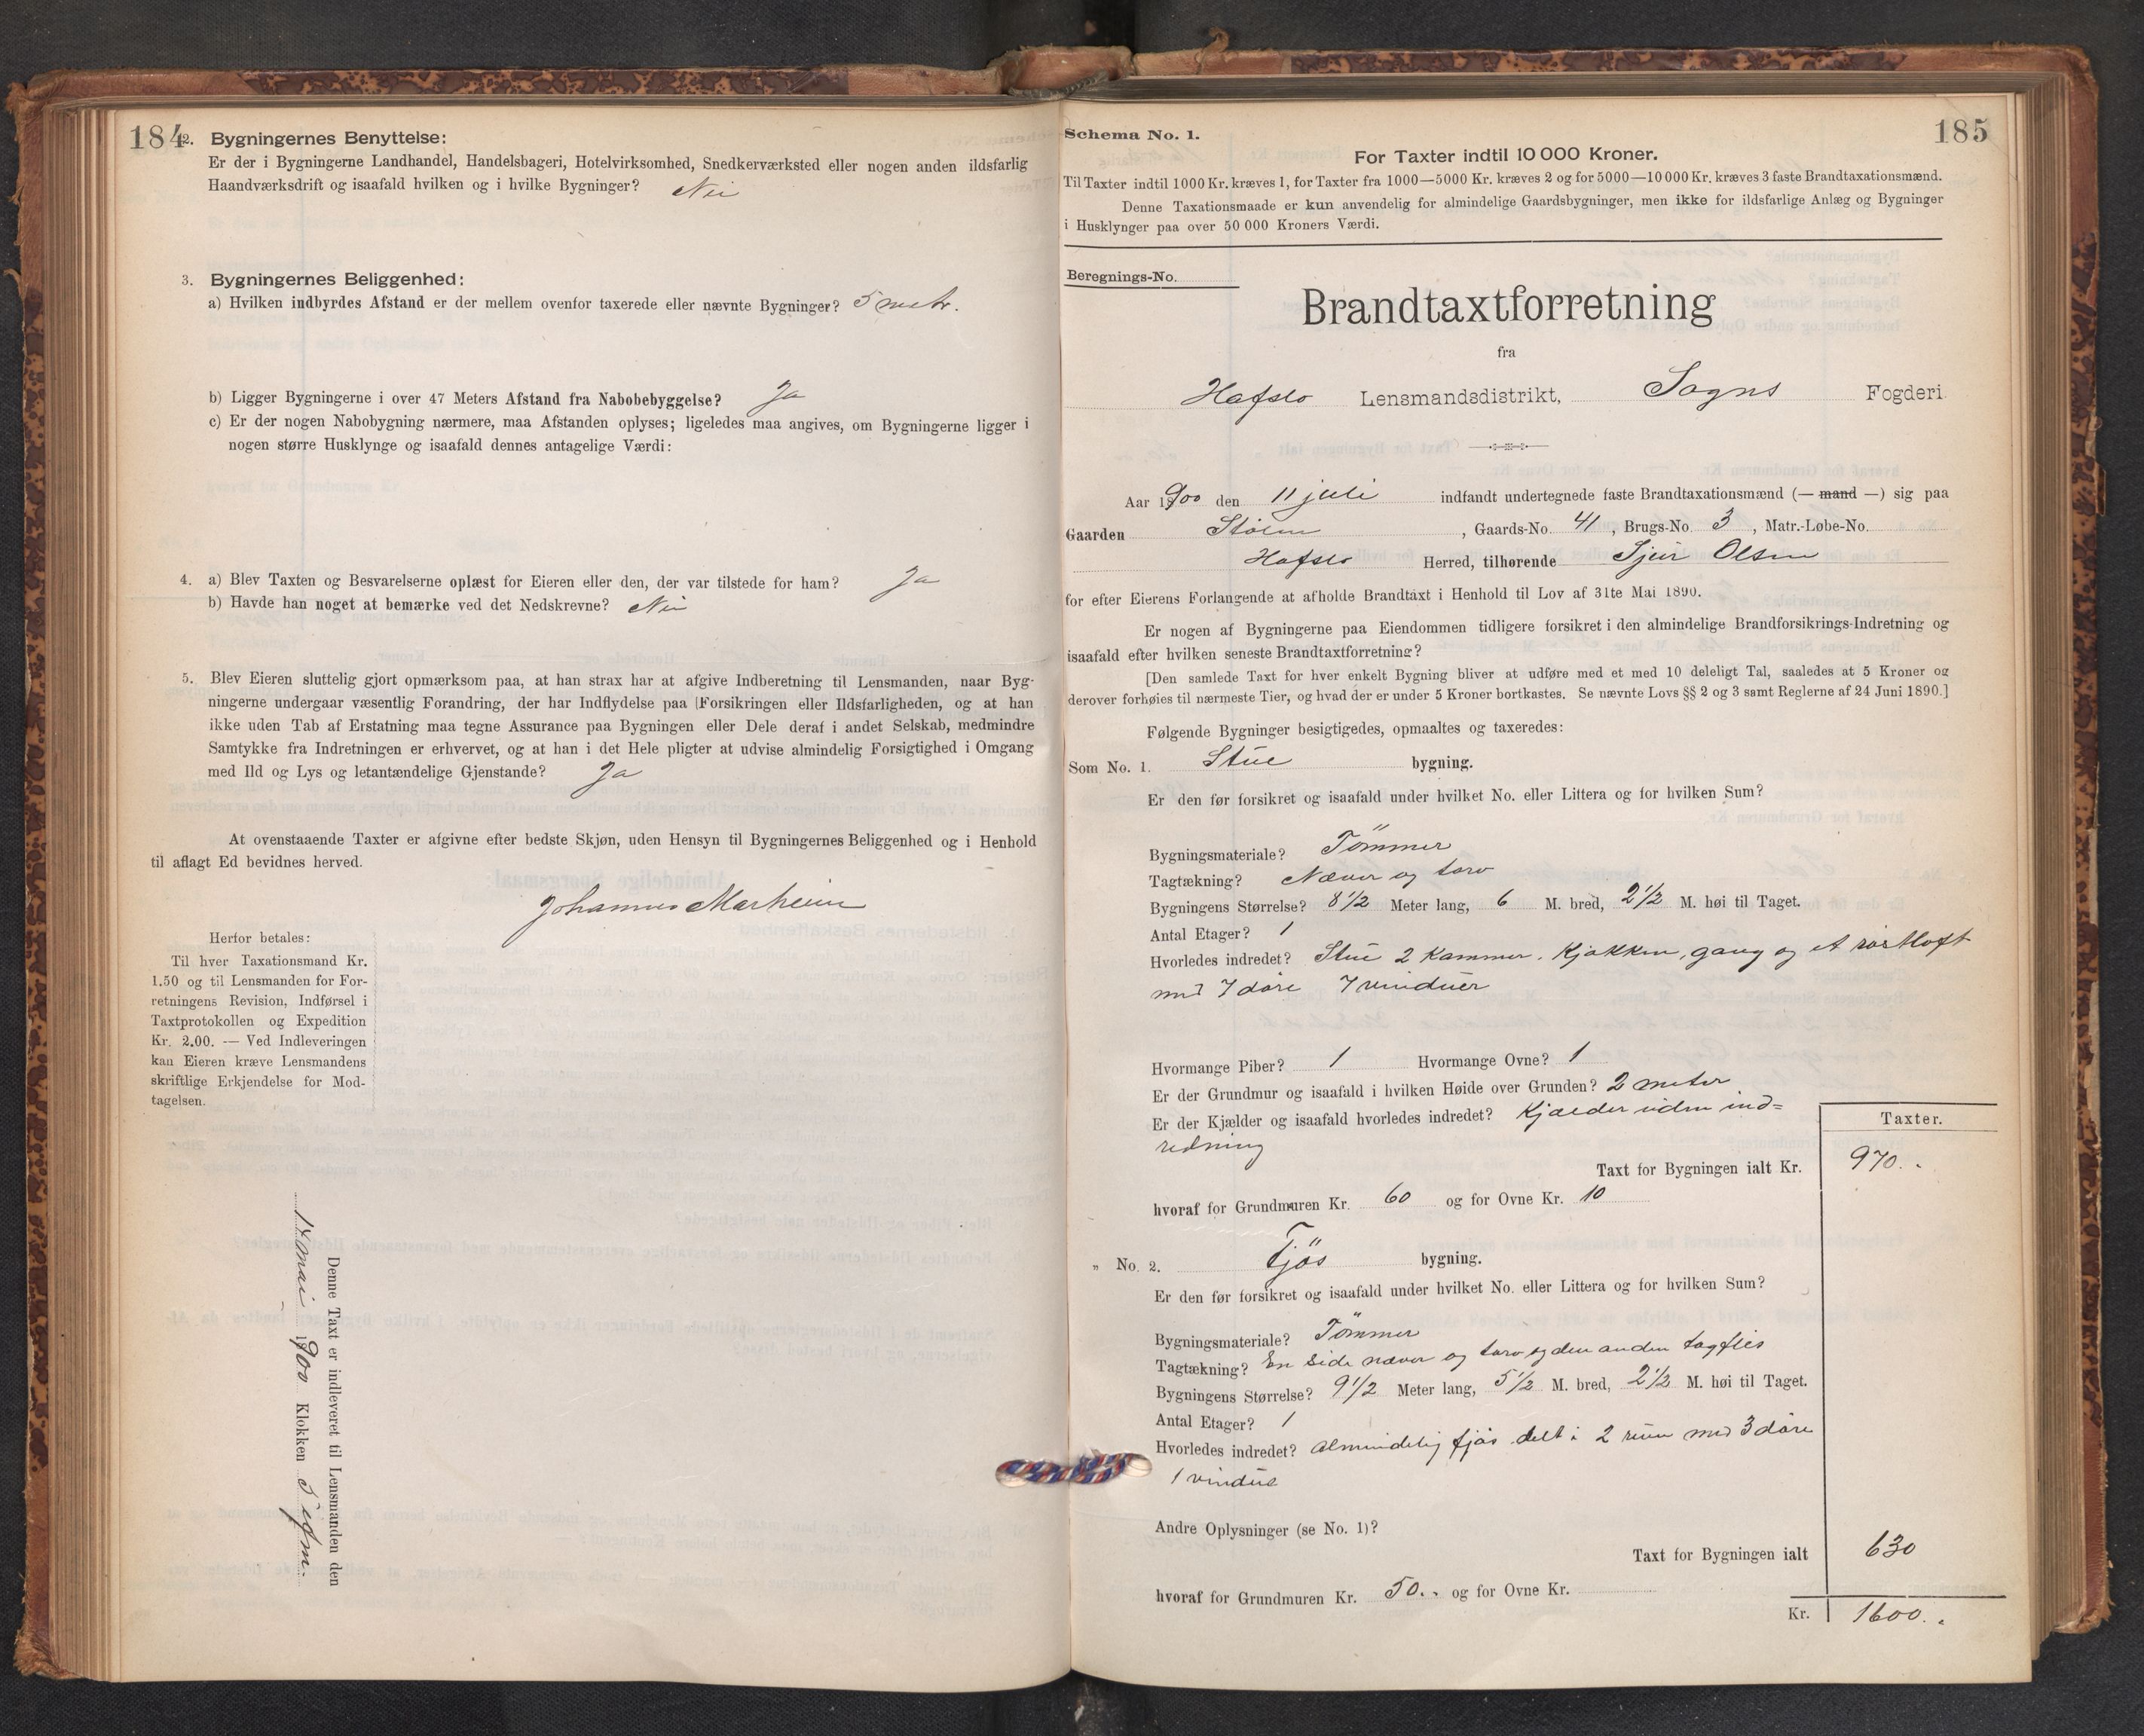 184
2. Bygningernes Benyttelse:
Er der i Bygningerne Landhandel, Handelsbageri, Hotelvirksomhed, Snedkerværksted eller nogen anden ildsfarlig
Haandværksdrift og isaafald hvilken og i hvilke Bygninger? Nei
3. Bygningernes Beliggenhed:
a) Hvilken indbyrdes Afstand er der mellem ovenfor taxerede eller nævnte Bygninger? 5 metr.
b) Ligger Bygningerne i over 47 Meters Afstand fra Nabobebyggelse? Ja
c) Er der nogen Nabobygning nærmere, maa Afstanden oplyses; ligeledes maa angives, om Bygningerne ligger i
nogen større Husklynge og isaafald dennes antagelige Værdi:
4. a) Blev Taxten og Besvarelserne oplæst for Eieren eller den, der var tilstede for ham? Ja
b) Havde han noget at bemærke ved det Nedskrevne? Nei
5. Blev Eieren sluttelig gjort opmærksom paa, at han strax har at afgive Indberetning til Lensmanden, naar Byg-
ningerne undergaar væsentlig Forandring, der har Indflydelse paa Forsikringen eller Ildsfarligheden, og at han
ikke uden Tab af Erstatning maa tegne Assurance paa Bygningen eller Dele deraf i andet Selskab, medmindre
Samtykke fra Indretningen er erhvervet, og at han i det Hele pligter at udvise almindelig Forsigtighed i Omgang
med Ild og Lys og letantændelige Gjenstande? Ja
At ovenstaaende Taxter er afgivne efter bedste Skjøn, uden Hensyn til Bygningernes Beliggenhed og i Henhold
til aflagt Ed bevidnes herved.
Johannes Marheim
Herfor betales:
Til hver Taxationsmand Kr.
1.50 og til Lensmanden for For-
retningens Revision, Indførsel i
Taxtprotokollen og Expedition
Kr. 2.00. — Ved Indleveringen
kan Eieren kræve Lensmandens
skriftlige Erkjendelse for Mod-
tagelsen.
Denne Taxt er indleveret til Lensmanden den
mai 1900 Klokken 5 efm.
185
Schema No. 1.
For Taxter indtil 10 000 Kroner.
Til Taxter indtil 1000 Kr. kræves 1, for Taxter fra 1000—5000 Kr. kræves 2 og for 5000—10 000 Kr. kræves 3 faste Brandtaxationsmænd.
Denne Taxationsmaade er kun anvendelig for almindelige Gaardsbygninger, men ikke for ildsfarlige Anlæg og Bygninger
i Husklynger paa over 50 000 Kroners Værdi.
Beregnings-No.
Brandtaxtforretning
fra
Hafslo Lensmandsdistrikt, Sogns Fogderi
Aar 1900 den 11 juli indfandt undertegnede faste Brandtaxationsmænd (— mand —) sig paa
Gaarden Stölen, Gaards-No. 41, Brugs-No. 3, Matr.-Løbe-No.
Hafslo Herred, tilhørende Sjur Olsen
for efter Eierens Forlangende at afholde Brandtaxt i Henhold til Lov af 31te Mai 1890.
Er nogen af Bygningerne paa Eiendommen tidligere forsikret i den almindelige Brandforsikrings-Indretning og
isaafald efter hvilken seneste Brandtaxtforretning?
[Den samlede Taxt for hver enkelt Bygning bliver at udføre med et med 10 deleligt Tal, saaledes at 5 Kroner og
derover forhøies til nærmeste Tier, og hvad der er under 5 Kroner bortkastes. Se nævnte Lovs §§ 2 og 3 samt Reglerne af 24 Juni 1890.]
Følgende Bygninger besigtigedes, opmaaltes og taxeredes:
Som No. 1. Stue bygning.
Er den før forsikret og isaafald under hvilket No. eller Littera og for hvilken Sum?
Bygningsmateriale? Tömmer
Tagtækning? Næver og torv
Bygningens Størrelse? 8 1/2 Meter lang, 6 M. bred, 2 1/2 M. høi til Taget.
Antal Etager? 1
Hvorledes indredet? Stue 2 Kammer. Kjøkken, gang og et røstloft
med 7 døre 7 vinduer
Hvormange Piber? 1 Hvormange Ovne? 1
Er der Grundmur og isaafald i hvilken Høide over Grunden? 2 meter
Er der Kjælder og isaafald hvorledes indredet? Kjælder uden ind=
redning
Taxter.
Taxt for Bygningen ialt Kr. 970. -
hvoraf for Grundmuren Kr. 60 og for Ovne Kr. 10
" No. 2. Fjös bygning.
Er den før forsikret og isaafald under hvilket No. eller Littera og for hvilken Sum?
Bygningsmateriale? Tömmer
Tagtækning? En side næver og torv og den anden tagflis
Bygningens Størrelse? 9 1/2 Meter lang, 5 1/2 M. bred, 2 1/2 M. høi til Taget.
Antal Etager? 1
Hvorledes indredet? almindelig fjös delt i 2 rum med 3 døre
1 vindue
Andre Oplysninger (se No. 1)?
Taxt for Bygningen ialt 630
hvoraf for Grundmuren Kr. 50. - og for Ovne Kr.
Kr. 1600. -